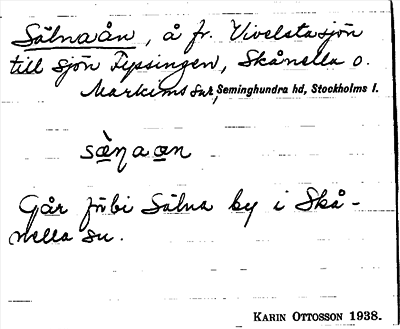 Sälnaån, å fr. Vivelstasjön
till sjön Fysingen, Skånella o.
Markims snr, Seminghundra hd, Stockholms l.
sὲṇaan
Går förbi Sälna by i Skå-
nella sn.
KARIN OTTOSSON 1938.